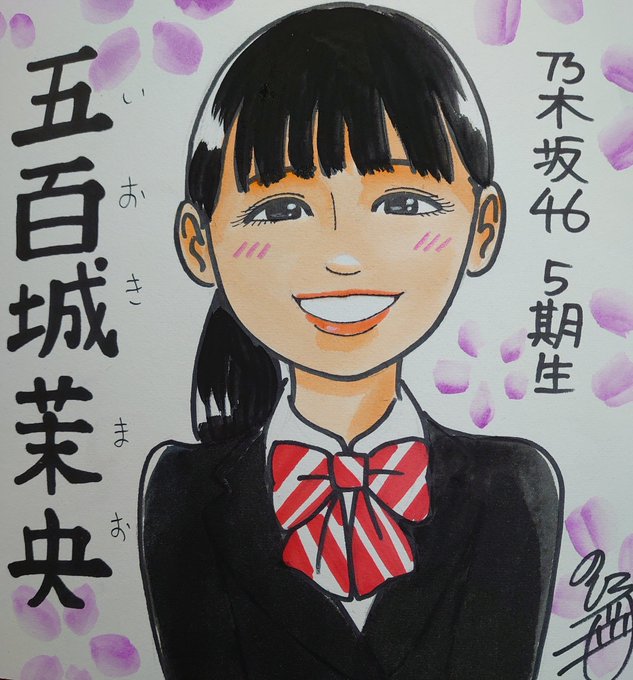 乃木坂46 5期生
五百城茉央
いおきまお